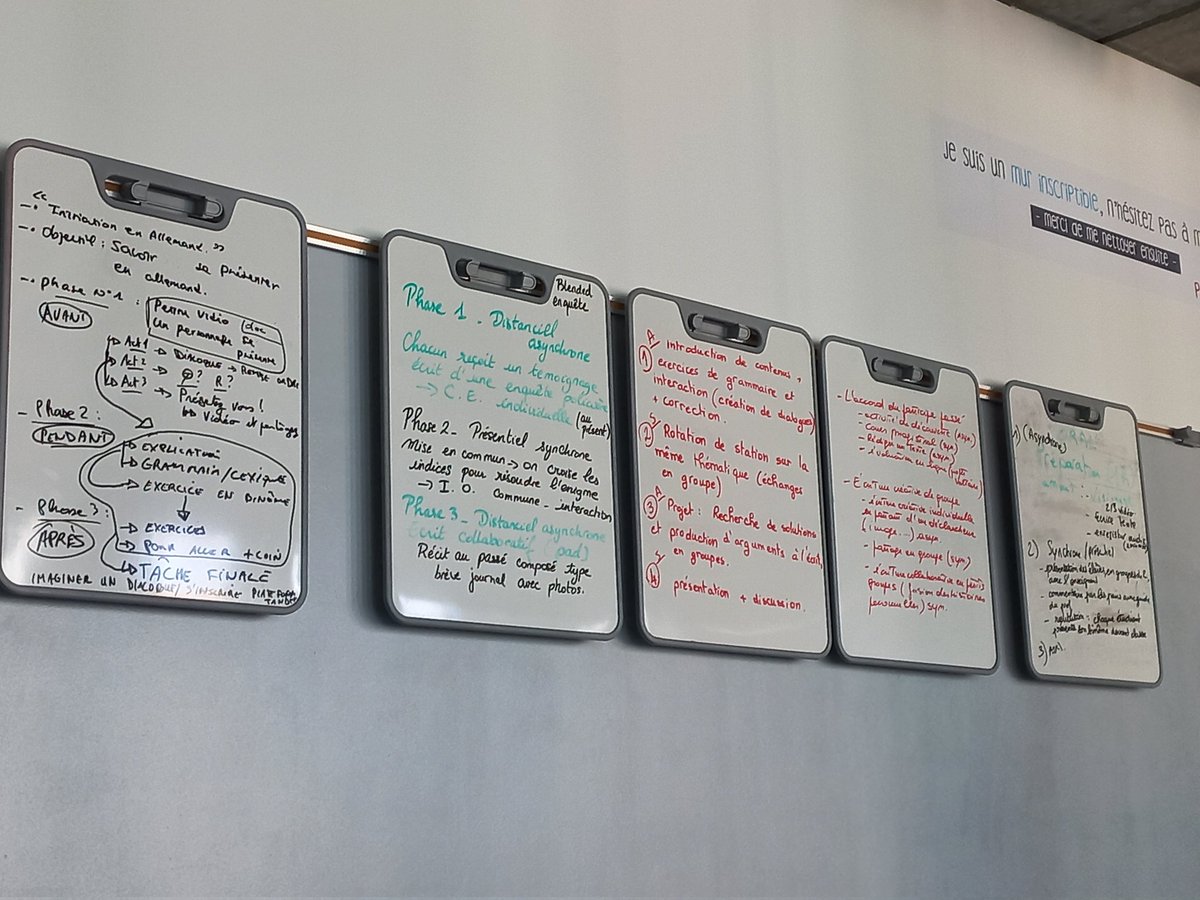 « Initiation en Allemand. »
Objectif : Savoir se présenter
en allemand.
Phase n°1 :
AVANT
Vidéo doc
un personnage se
présente
Act 1 → Dialogue →
Act 2 → Q? R?
Act 3 → Présentez vous !
→ Vidéo et partages
- Phase 2 :
PENDANT
→ EXPLICATION
→ GRAMMAIRE/LEXIQUES
→ EXERCICE EN BINÔME
- Phase 3 :
APRÈS
→ EXERCICES
→ POUR ALLER + LOIN
→ TÂCHE FINALE
IMAGINER UN DIALOGUE/ S'INSCRIRE
Blended
enquête
Phase 1 - Distanciel
asynchrone
Chacun reçoit un témoignage
écrit d'une enquête policière
→ C. E. individuelle (au
présent)
Phase 2 - Présentiel synchrone
Mise en commun → on croise les
indices pour résoudre l'énigme
→ I. O. commune - interaction
Phase 3 - Distanciel asynchrone
Écrit collaboratif (pad)
Récit au passé composé type
brève journal avec photos.
A
1 introduction de contenus,
exercices de grammaire et
interaction (création de dialogues)
+ correction.
S
2 Rotation de station sur la
même thématique (échanges
en groupe)
A
3 Projet : Recherche de solutions
et production d'arguments à l'écrit,
en groupes.
S
4 présentation + discussion.
- L'accord du participe passé
- activité de découverte (asyn)
- Cours magistral (syn)
- évaluation en ligne
- Écriture créative de groupe
- écriture créative individuelle
en partant d'un déclencheur
(image...) asyn
- partage en groupe (syn)
- écriture collaborative en petits
groupes (fusion des histoires
personnelles) syn.
1) (Asynchrone)
2/3 vidéo
- enregistrer
2) Synchrone
- présentation des élèves en groupes de 2,
avec l'enseignant
- commentaire par les pairs
du prof
- chaque étudiant
présente son binôme devant classe
3)
Je suis un mur inscriptible, n'hésitez pas à m
- merci de me nettoyer ensuite -
P